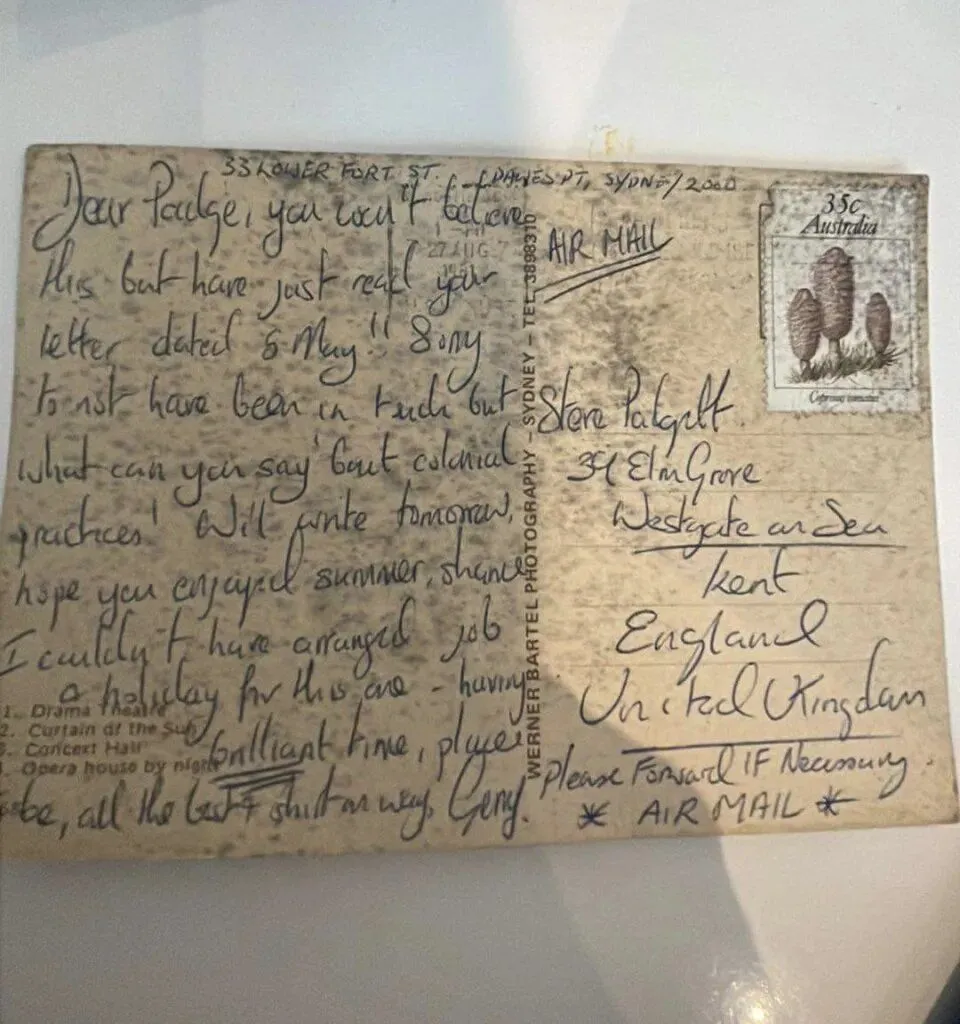 33 LOWER FORT ST. DAWES PT, SYDNEY 2000
Dear Padge, you won't believe
this but have just read your
letter dated 5 May!! Sorry
to not have been in touch but
what can you say 'bout colonial
practices! Will write tomorrow,
hope you enjoyed summer, shame
I couldn't have arranged job
a holiday for this one - having
brilliant time, place
to be, all the best & shirt on way, Gerry.
1. Drama Theatre
2. Curtain of the Sun
3. Concert Hall
4. Opera house by night
27 AUG
WERNER BARTEL PHOTOGRAPHY - SYDNEY - TEL. 3898310
AIR MAIL
35c
Australia
Coprinus comatus
Steve Padgett.
39 Elm Grove
Westgate on Sea
Kent
England
United Kingdom
Please Forward IF Necessary.
* AIR MAIL *